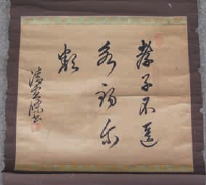 孝子不匱
永錫爾
類